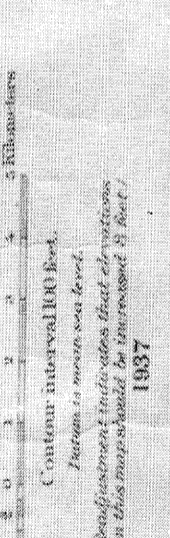 0 1 2 3 4 5 Kilometers
Contour interval 100 feet.
Datum is mean sea level.
eadjustment indicates that elevations
n this map should be increased 9 feet
1937